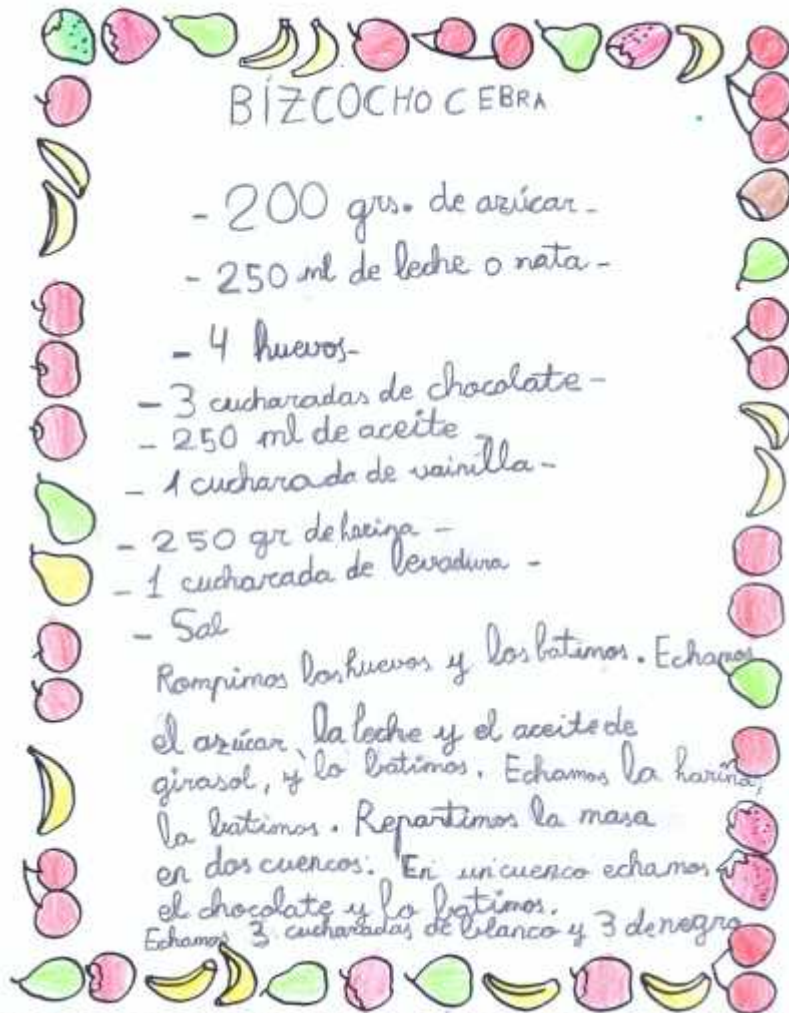 BÍZCOCHO CEBRA
- 200 grs. de azúcar -
- 250 ml de leche o nata -
- 4 huevos -
- 3 cucharadas de chocolate -
- 250 ml de aceite -
- 1 cucharada de vainilla -
- 250 gr de harina -
- 1 cucharada de levadura -
- Sal
Rompimos los huevos y los batimos. Echamos
el azúcar, la leche y el aceite de
girasol, y lo batimos. Echamos la harina,
la batimos. Repartimos la masa
en dos cuencos. En un cuenco echamos
el chocolate y lo batimos.
Echamos 3 cucharadas de blanco y 3 de negro